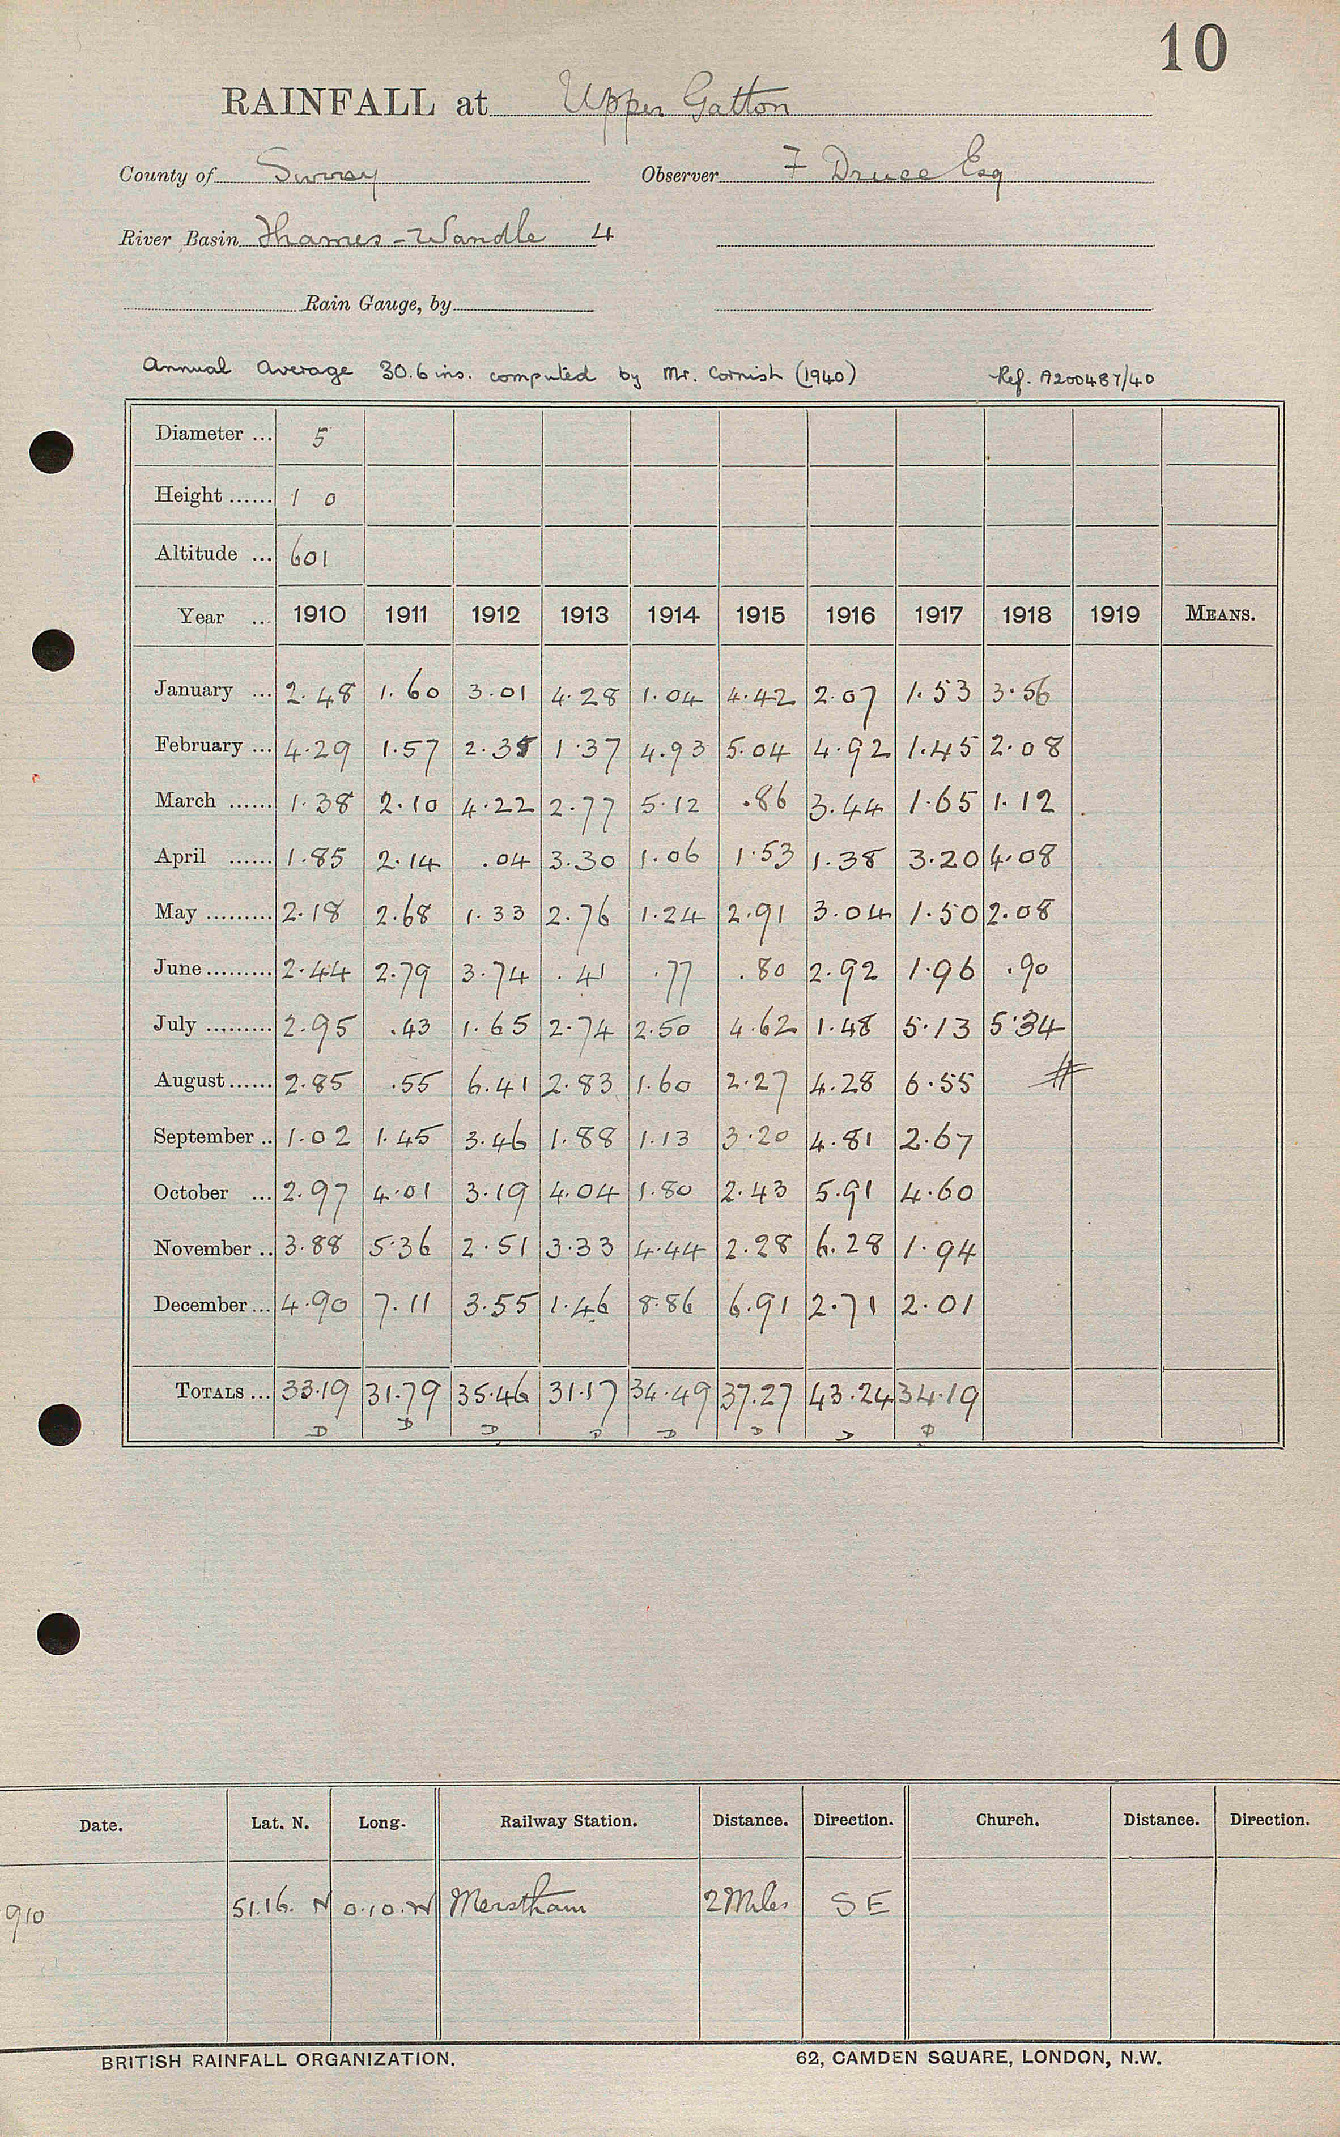 10
RAINFALL at Upper Gatton
County of Surrey Observer F Druce Esq
River Basin Thames - Wandle 4
Rain Gauge, by
Annual Average 30.6 ins. computed by Mr. Cornish (1940) Ref. A200487/40
Diameter ... 5
Height ...... 1 0
Altitude ... 601
Year ... 1910 1911 1912 1913 1914 1915 1916 1917 1918 1919 MEANS.
January ... 2.48 1.60 3.01 4.28 1.04 4.42 2.07 1.53 3.56
February ... 4.29 1.57 2.35 1.37 4.93 5.04 4.92 1.45 2.08
March ...... 1.38 2.10 4.22 2.77 5.12 .86 3.44 1.65 1.12
April ...... 1.85 2.14 .04 3.30 1.06 1.53 1.38 3.20 4.08
May ......... 2.18 2.68 1.33 2.76 1.24 2.91 3.04 1.50 2.08
June ......... 2.44 2.79 3.74 .41 .77 .80 2.92 1.96 .90
July ......... 2.95 .43 1.65 2.74 2.50 4.62 1.48 5.13 5.34
August ...... 2.85 .55 6.41 2.83 1.60 2.27 4.28 6.55 #
September .. 1.02 1.45 3.46 1.88 1.13 3.20 4.81 2.67
October ... 2.97 4.01 3.19 4.04 1.80 2.43 5.91 4.60
November .. 3.88 5.36 2.51 3.33 4.44 2.28 6.28 1.94
December ... 4.90 7.11 3.55 1.46 8.86 6.91 2.71 2.01
TOTALS ... 33.19 31.79 35.46 31.17 34.49 37.27 43.24 34.19
D D D D D D D D
Date. Lat. N. Long. Railway Station. Distance. Direction. Church. Distance. Direction.
910 51.16. N 0.10.W Merstham 2 Miles S E
BRITISH RAINFALL ORGANIZATION. 62, CAMDEN SQUARE, LONDON, N.W.